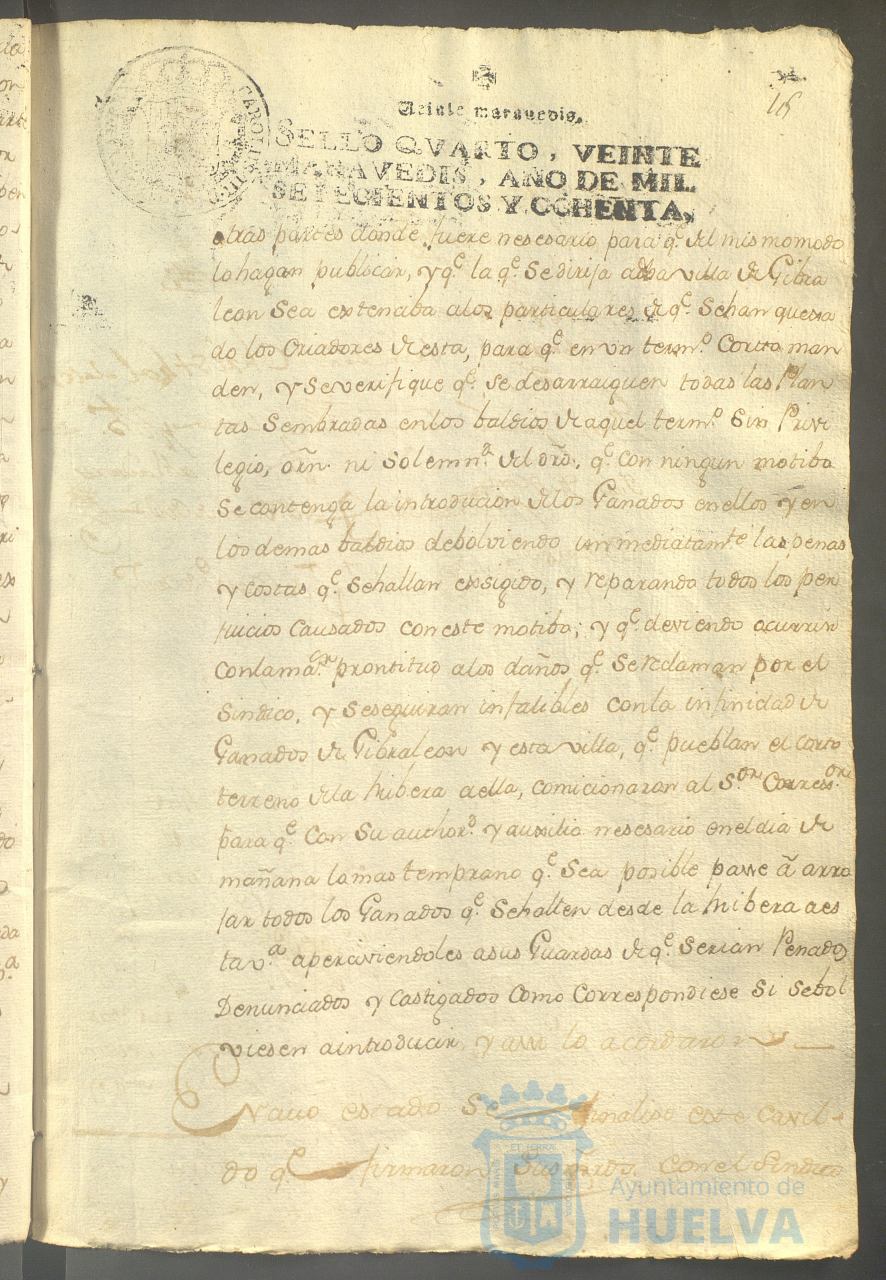 16
Veinte maravedis.
SELLO QVARTO, VEINTE
MARAVEDIS, AÑO DE MIL
SETECIENTOS Y OCHENTA,
otras partes donde fuere nesesario para q.e del mismo modo
lo hagan publicar, y q.e la q.e se dirija a dha villa de Gibra
leon sea extensiba a los particulares de q.e se han quexa
do los Criadores de esta, para q.e en un term.o corto man
den, y se verifique q.e se desarraiguen todas las Plan
tas sembradas en los baldios de aquel term.o sin Privi
legio, orn. ni solemn.d del dro, q.e con ningun motibo
se contenga la introducion de los Ganados en ellos y en
los demas baldios debolviendo inmediatam.te las penas
y costas q.e se hallan exsigido, y reparando todos los per
juicios causados con este motibo; y q.e deviendo ocurrir
con la ma.or prontitud a los daños q.e se reclaman por el
Sindico, y se seguiran infalibles con la infinidad de
Ganados de Gibraleon y esta villa, q.e pueblan el corto
terreno de la Ribera de ella, comicionaron al S.or Corregs.or
para q.e con su author.d y auxilio nesesario en el dia de
mañana lo mas temprano q.e sea posible passe à arro
jar todos los Ganados q.e se hallen desde la Ribera a es
ta v.a aperciviendoles a sus Guardas de q.e serian Penados
Denunciados y castigados como correspondiese si se bol
viesen a introducir, y assi lo acordaron
En cuio estado se finalizo este Cavil-
do q.e firmaron sus mrds. con el Sindico
ET TERRA
Ayuntamiento de
HUELVA